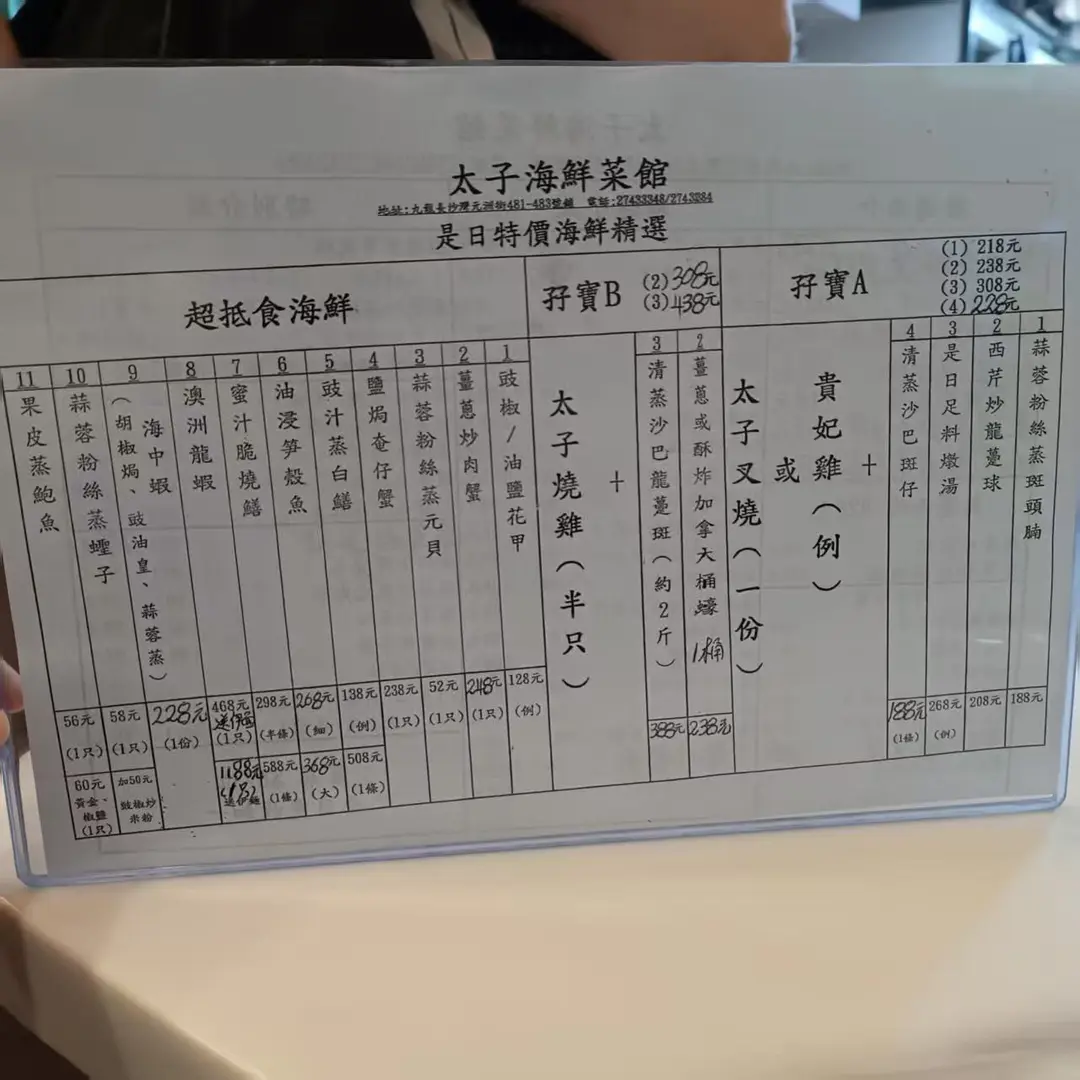 太子海鮮菜館
地址:九龍長沙灣元洲街481-483號舖 電話:27433348/2743284
是日特價海鮮精選
孖寶A
(1) 218元
(2) 238元
(3) 308元
(4) 228元
1 蒜蓉粉絲蒸斑頭腩 188元
2 西芹炒龍躉球 208元
3 是日足料燉湯 268元 (例)
4 清蒸沙巴斑仔 188元 (1條)
+
貴妃雞(例)
或
太子叉燒(一份)
孖寶B
(2) 308元
(3) 438元
2 薑蔥或酥炸加拿大桶蠔 1桶 238元
3 清蒸沙巴龍躉斑(約2斤) 388元
+
太子燒雞(半只)
超抵食海鮮
1 豉椒/油鹽花甲 128元 (例)
2 薑蔥炒肉蟹 248元 (1只)
3 蒜蓉粉絲蒸元貝 52元 (1只)
4 鹽焗奄仔蟹 238元 (1只)
5 豉汁蒸白鱔 138元 (例) 508元 (1條)
6 油浸笋殼魚 268元 (細) 368元 (大)
7 蜜汁脆燒鱔 298元 (半條) 588元 (1條)
8 澳洲龍蝦 468元 送伊麵 (1只) 1188元 送伊麵
9 海中蝦 (胡椒焗、豉油皇、蒜蓉蒸) 228元 (1份)
10 蒜蓉粉絲蒸蟶子 58元 (1只) 加50元 豉椒炒米粉
11 果皮蒸鮑魚 56元 (1只) 60元 黃金、椒鹽 (1只)